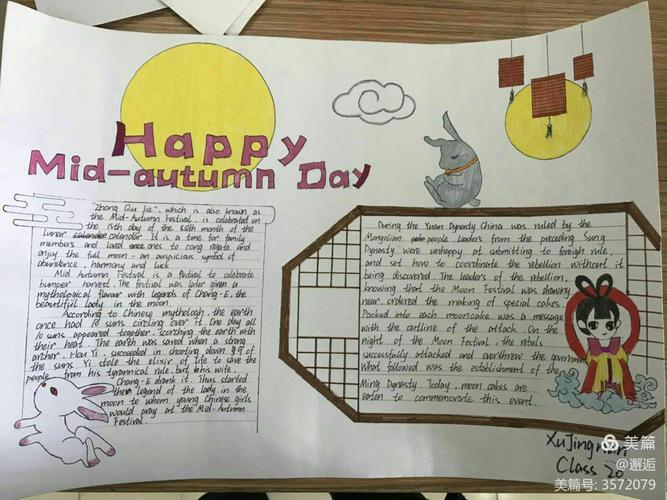 Happy
Mid-autumn Day
"Zhong Qiu Jie", which is also known as
the Mid-Autumn Festival, is celebrated on
the 15th day of the eighth month of the
lunar calendar. It is a time for family
members and loved ones to congregate and
enjoy the full moon - an auspicious symbol of
abundance, harmony and luck.
Mid Autumn Festival is a festival to celebrate
bumper harvest. The festival was later given a
mythological flavour with legends of Chang-E, the
beautiful lady in the moon.
According to Chinese mythology, the earth
once had 10 suns circling over it. One day all
10 suns appeared together, scorching the earth with
their heat. The earth was saved when a strong
archer, Hou Yi, succeeded in shooting down 9 of
the suns. Yi stole the elixir of life to save the
people from his tyrannical rule, but his wife,
Chang-E drank it. Thus started
the legend of the lady in the
moon to whom young Chinese girls
would pray at the Mid-Autumn
Festival.
During the Yuan Dynasty China was ruled by the
Mongolian people. Leaders from the preceding Sung
Dynasty were unhappy at submitting to foreign rule,
and set how to coordinate the rebellion without it
being discovered. The leaders of the rebellion,
knowing that the Moon Festival was drawing
near, ordered the making of special cakes.
Packed into each mooncake was a message
with the outline of the attack. On the
night of the Moon Festival, the rebels
successfully attacked and overthrew the government.
What followed was the establishment of the
Ming Dynasty. Today, moon cakes are
eaten to commemorate this event.
XuJingnan
Class 20
美篇
@邂逅
美篇号: 3572079